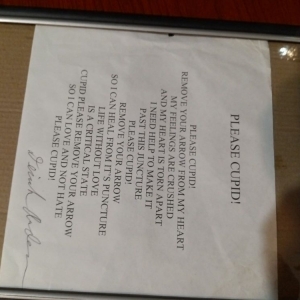 PLEASE CUPID!
PLEASE CUPID!
REMOVE YOUR ARROW FROM MY HEART
MY FEELINGS ARE CRUSHED
AND MY HEART IS TORN APART
I NEED HELP TO MAKE IT
PAST THIS JUNCTURE
PLEASE CUPID!
REMOVE YOUR ARROW
SO I CAN HEAL FROM IT'S PUNCTURE
LIFE WITHOUT LOVE
IS A CRITICAL STATE
CUPID PLEASE REMOVE YOUR ARROW
SO I CAN LOVE AND NOT HATE
PLEASE CUPID!